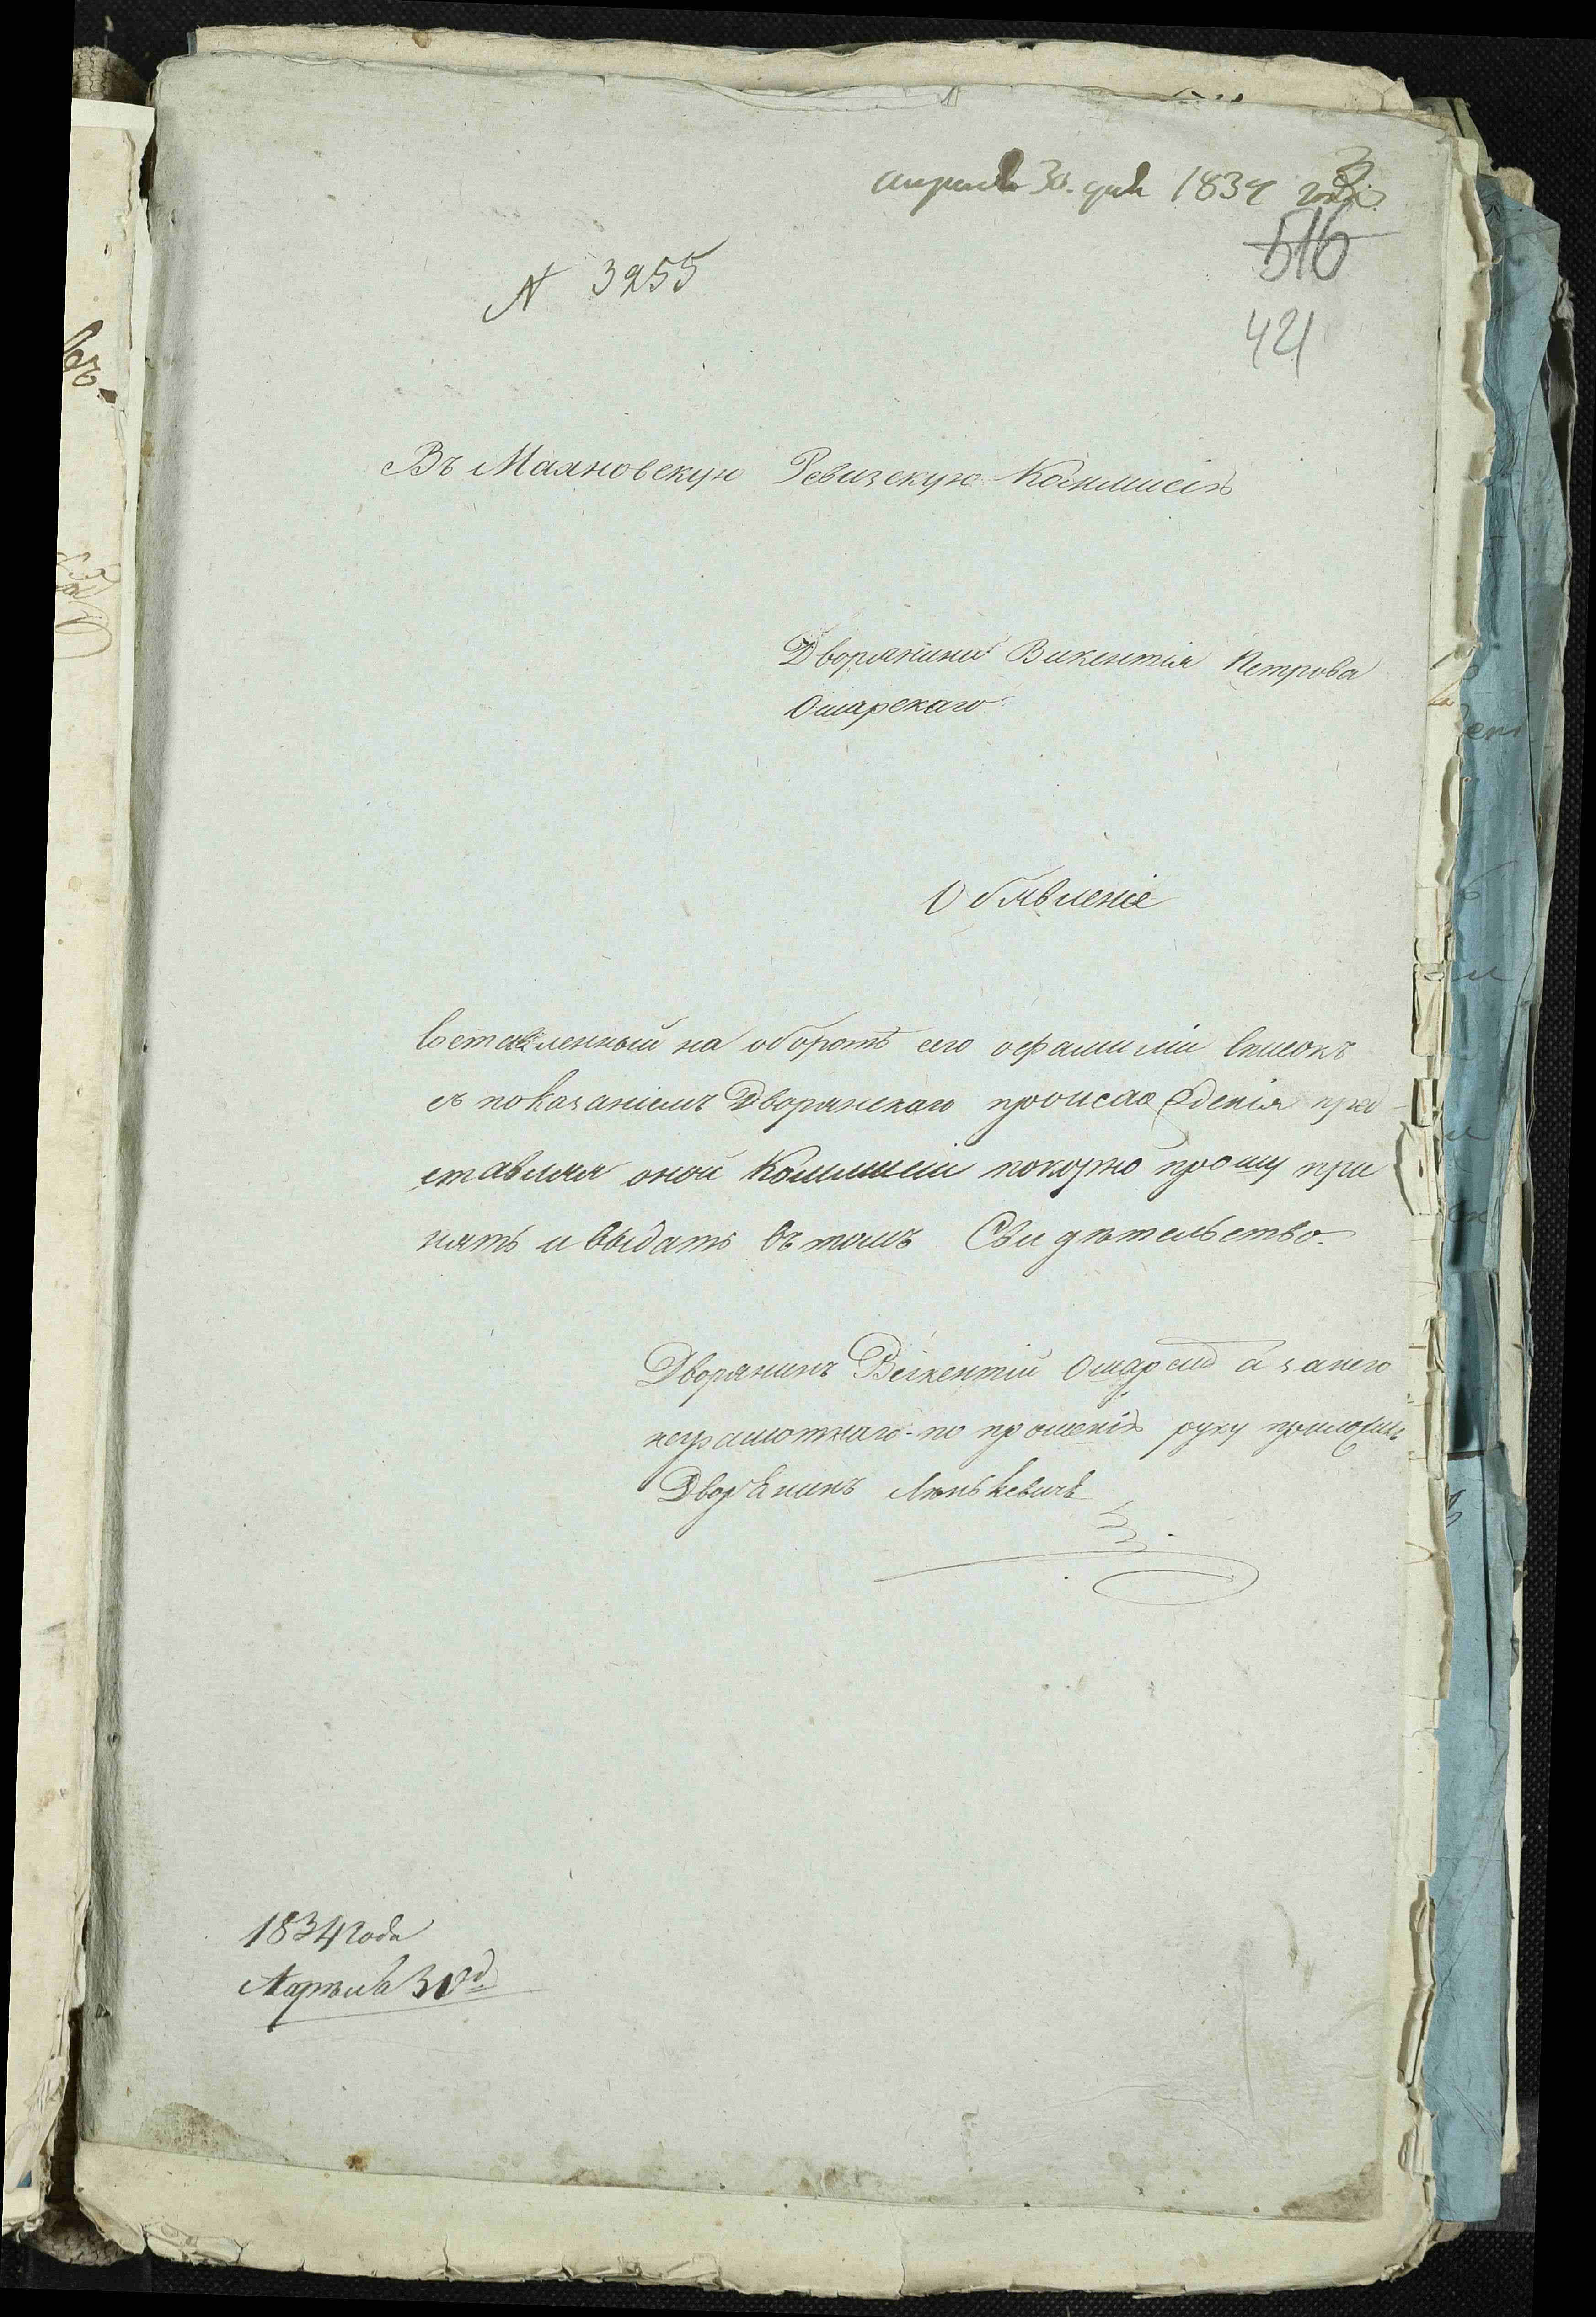 апреля 30. дня 1834 года.
516
421
N 3255
Въ Маяновскую Ревизскую Коммисію
Дворянина Викентія Петрова
Ошарскаго
Объявленіе
Составленный на оборотѣ сего о фамиліи списокъ
съ показаніемъ Дворянскаго происхожденія пред-
ставляя оной Коммисіи покорно прошу при
нять и выдать въ томъ Свидѣтельство.
Дворянинъ Викентій Ошарскій а за него
неграмотнаго по прошенію руку приложилъ
Дворянинъ Лѣнькевичъ
1834 года
Апрѣля 30 д